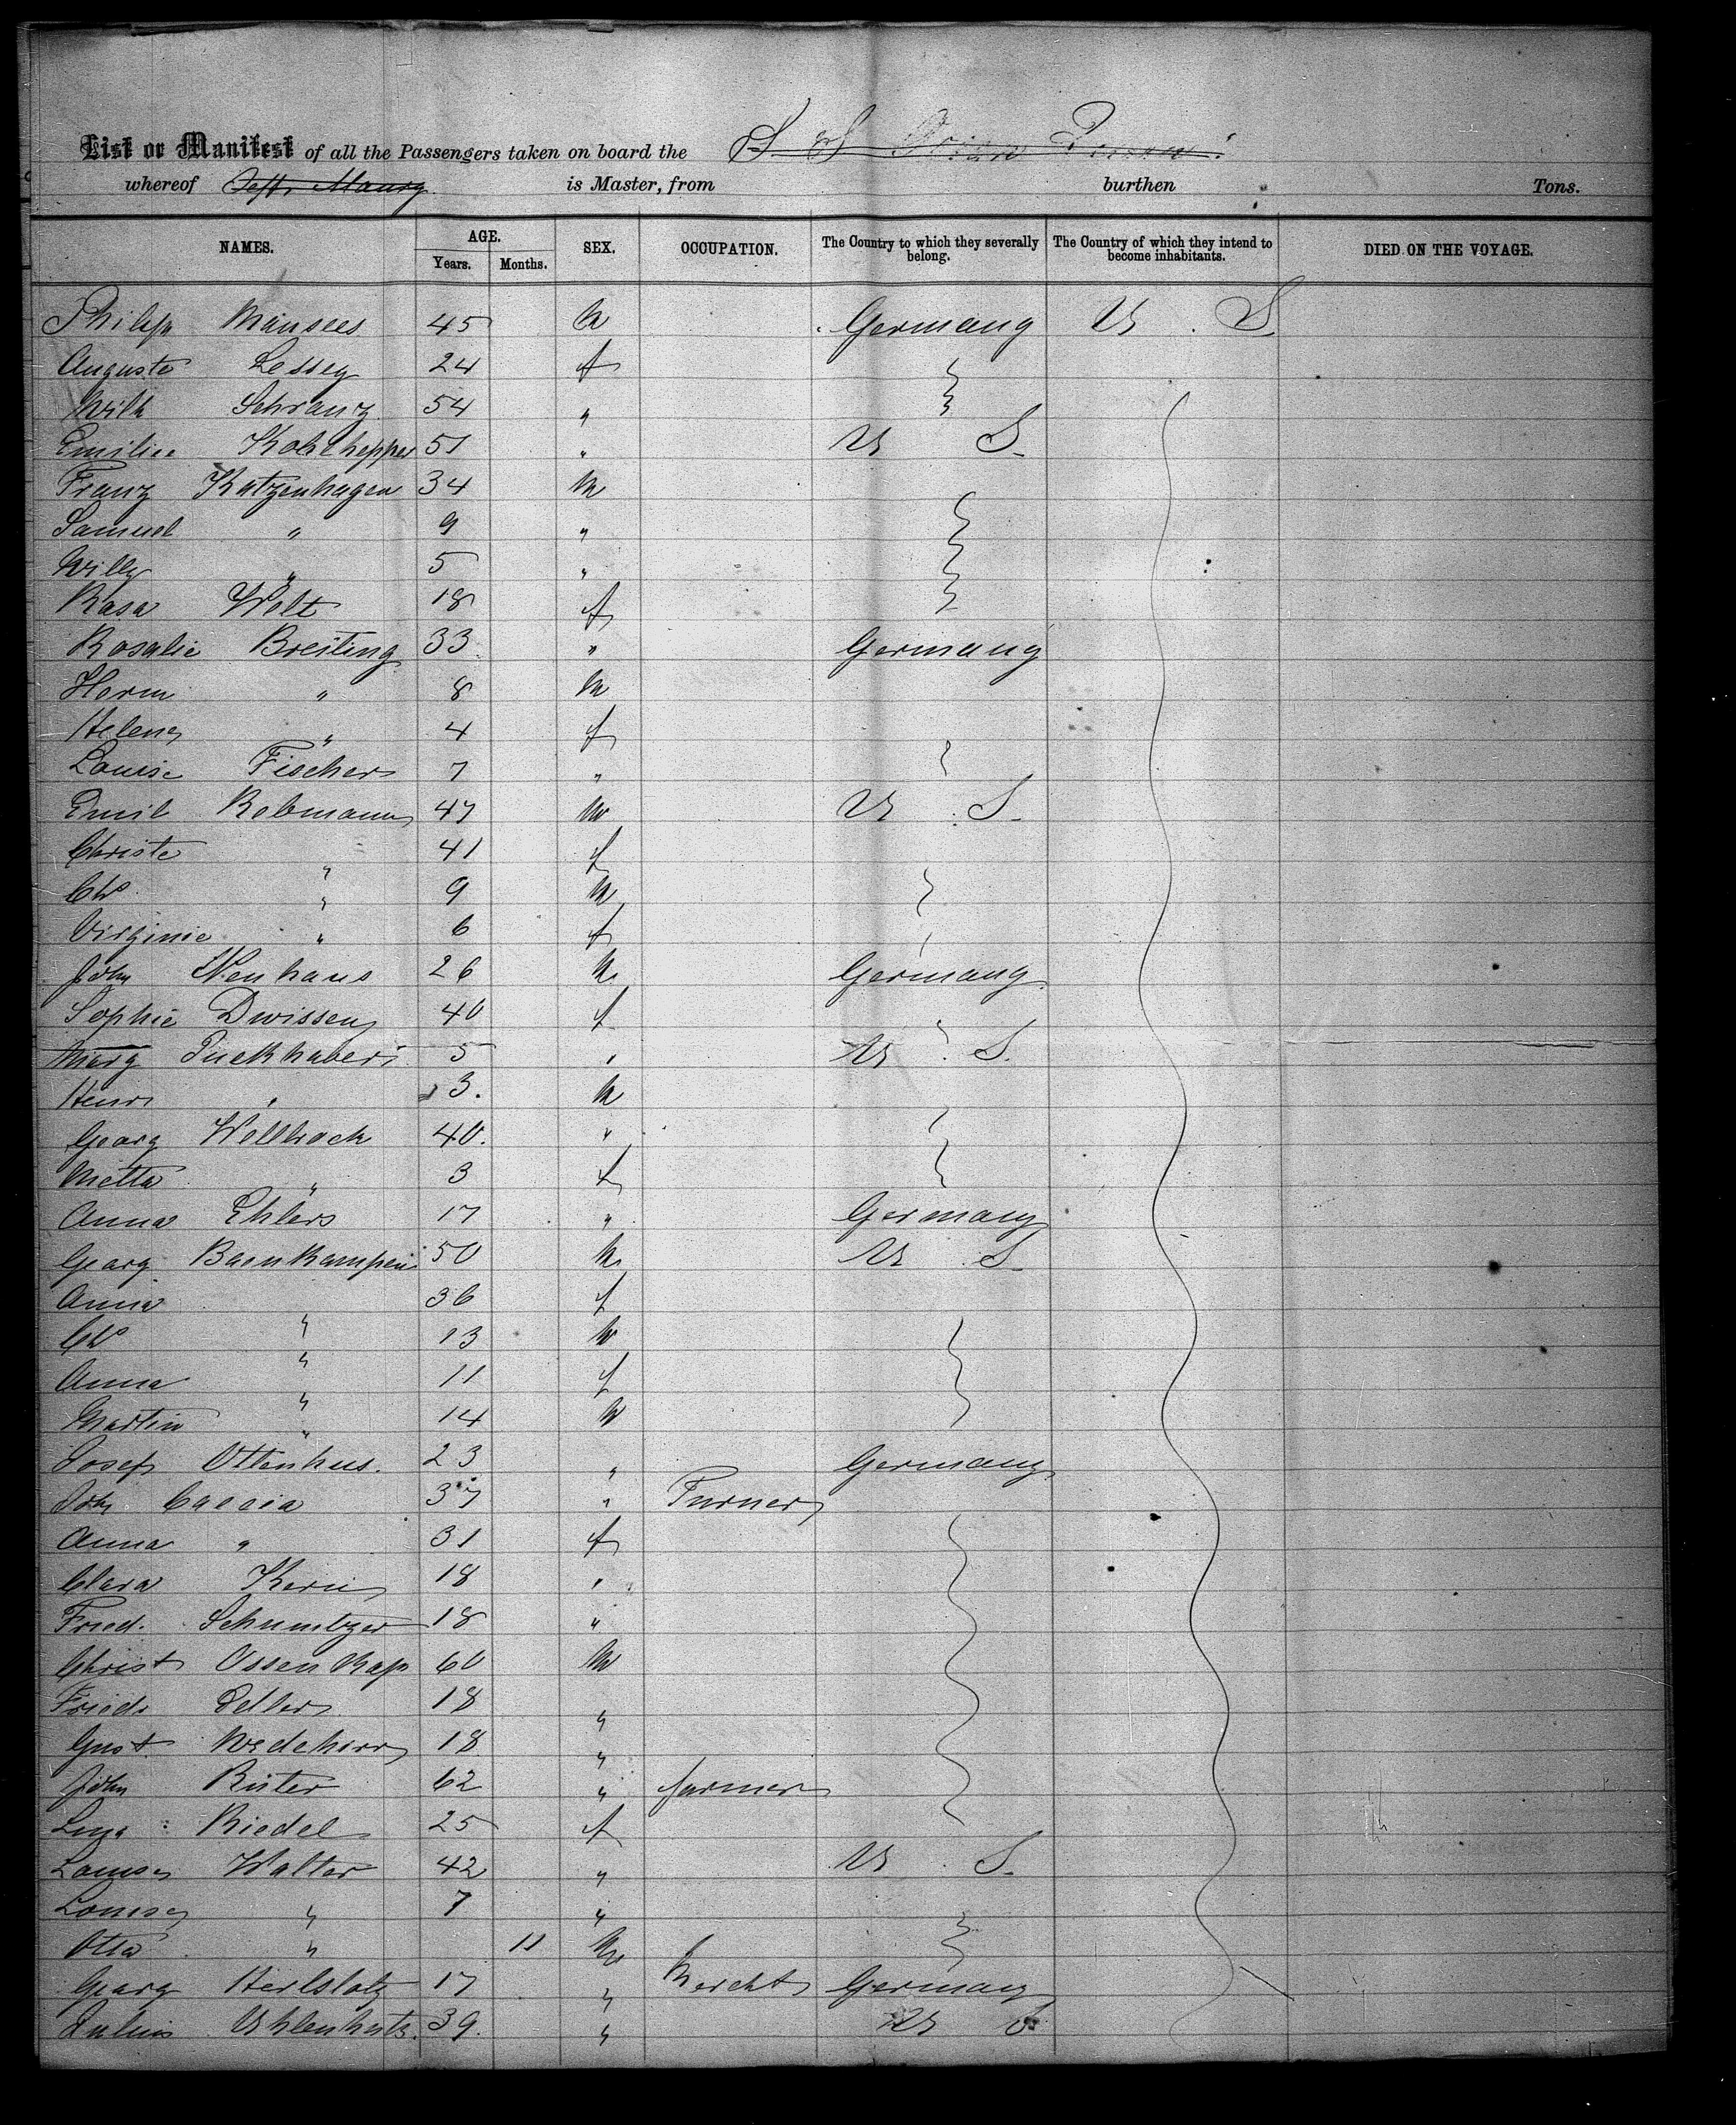 List or Manifest of all the Passengers taken on board the S. S.
whereof is Master, from burthen Tons.
NAMES. AGE. SEX. OCCUPATION. The Country to which they severally belong. The Country of which they intend to become inhabitants. DIED ON THE VOYAGE.
Years. Months.
Philip 45 m Germany U. S.
Auguste Lessey 24 f
Wilh Schranz 54 "
Emilie 51 " U S.
Franz Katzenhagen 34 m
Samuel " 9 "
Willy " 5 "
Rosa Welt 18 f
Rosalie Breiting 33 " Germany
Herm " 8 m
Helene " 4 f
Louise Fischer 7 "
Emil Rebmann 47 m U. S.
Christe " 41 f
Chs " 9 m
Virginie " 6 f
John Neuhaus 26 m Germany
Sophie 40 f
Marg 5 " U. S.
Henri " 3. m
Georg Wellbrock 40. "
Metta " 3 f
Anna Ehlers 17 " Germany
Georg 50 m U. S.
Anna " 36 f
Chs " 13 m
Anna " 11 f
Martin " 14 m
Josef Ottenhus. 23 " Germany
John Caccia 37 " Turner
Anna " 31 f
Clara 18 "
Fried. 18 "
Christ Ossenkap 60 m
Friedr 18 "
Gust 18 "
John Rüter 62 " farmer
Lina Riedel 25 f
Louise Walter 42 " U. S.
Louise " 7 "
Otto " 11 m
Georg 17 " Germany
Julius 39. " U S